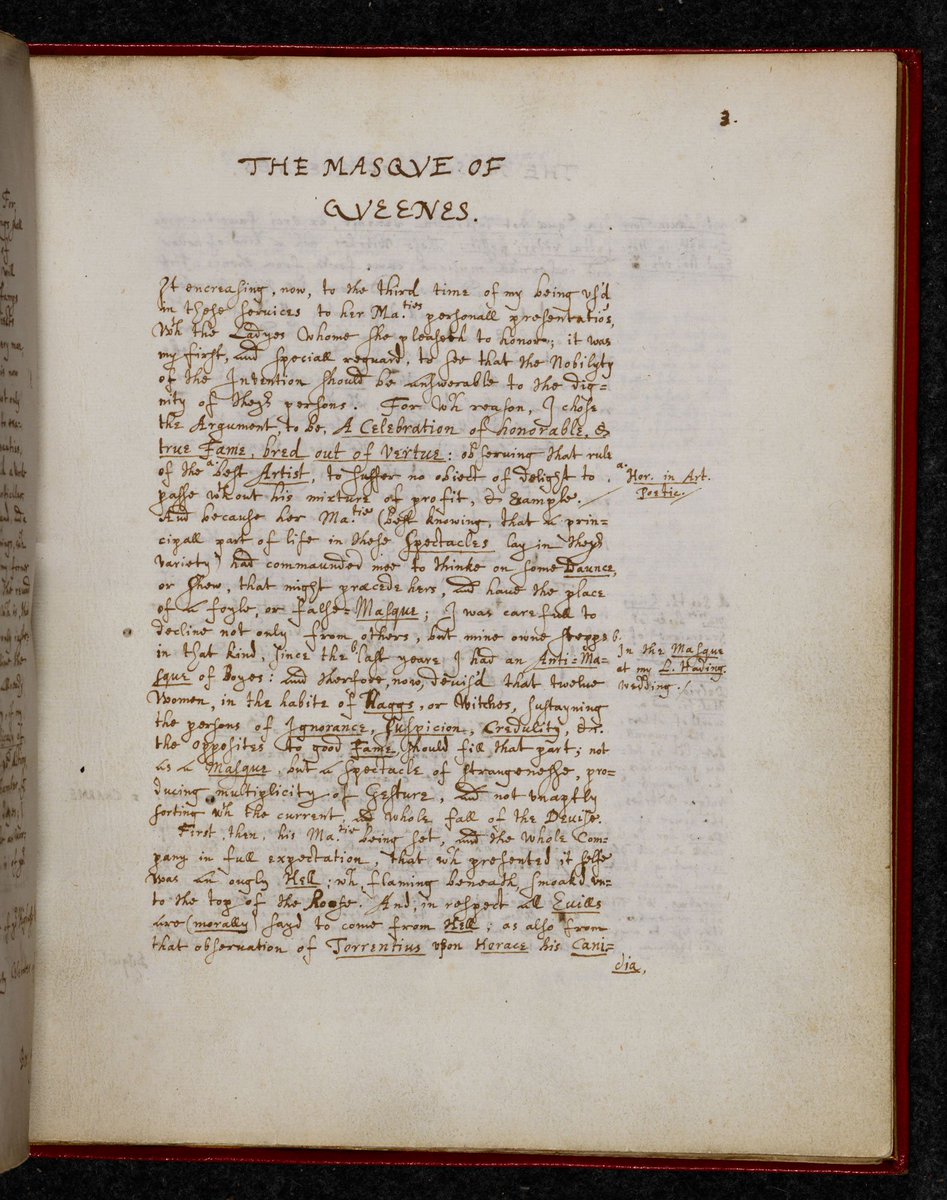 3.
THE MASQVE OF
QVEENES.
It encreasing, now, to the third time of my being vs'd
in these services to her Ma.ties personall presentatiõs,
wth the Ladyes whome she pleaseth to honor; it was
my first, and speciall reguard, to see that the Nobilyty
of the Invention should be answerable to the dig-
nity of theyr persons. For wch reason, I chose
the Argument, to be, A Celebration of honorable, &
true Fame, bred out of Vertue: obseruing that rule
of the a best Artist, to suffer no obiect of delight to
passe wthout his mixture of profit, & example.
a. Hor. in Art.
Poetic.
And because her Ma.tie (best knowing, that a prin-
cipall part of life in these Spectacles lay in theyr
variety) had commaunded mee to thinke on some Daunce,
or shew, that might præcede hers, and haue the place
of a foyle, or false-Masque; I was carefull to
decline not only from others, but mine owne stepps
in that kind, since the b last yeare I had an Anti-Ma-
sque of Boyes: and therefore, now, deuis'd that twelue
b. In the Masque
at my L. Hading.
wedding.
Women, in the habite of Haggs, or Witches, sustayning
the persons of Ignorance, Suspicion, Credulity, &c.
the opposites to good Fame, should fill that part; not
as a Masque, but a spectacle of strangenesse, pro-
ducing multiplicity of Gesture, and not vnaptly
sorting wth the current, and whole fall of the Deuise.
First, then, his Ma.tie being set, and the whole Com-
pany in full expectation, that wch presented it selfe
was an ougly Hell; wch, flaming beneath, smoakd vn-
to the top of the Roofe. And, in respect all Euills
are (morally) sayd to come from Hell; as also from
that obseruation of Torrentius vpon Horace his Cani-
dia,